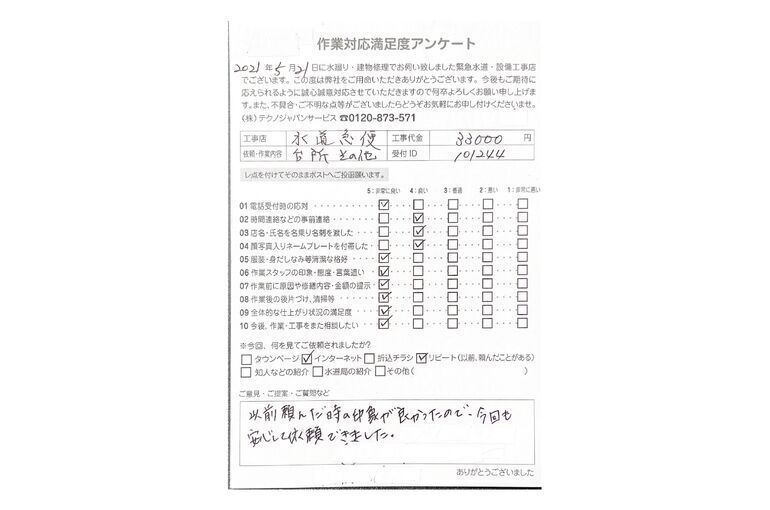 作業対応満足度アンケート
2021年5月21日に水廻り・建物修理でお伺い致しました緊急水道・設備工事店
でございます。この度は弊社をご用命いただきありがとうございます。今後もご期待に
応えられるように誠心誠意対応させていただきますので何卒よろしくお願い申し上げま
す。また、不具合・ご不明な点等がございましたらどうぞお気軽にお申し付けくださいませ。
(株)テクノジャパンサービス ☎0120-873-571
工事店 水道急便 工事代金 33000円
依頼・作業内容 台所 その他 受付ID 101244
レ点を付けてそのままポストへご投函願います。
5:非常に良い 4:良い 3:普通 2:悪い 1:非常に悪い
01 電話受付時の応対
02 時間連絡などの事前連絡
03 店名・氏名を名乗り名刺を渡した
04 顔写真入りネームプレートを付帯した
05 服装・身だしなみ等清潔な格好
06 作業スタッフの印象・態度・言葉遣い
07 作業前に原因や修繕内容・金額の提示
08 作業後の後片づけ、清掃等
09 全体的な仕上がり状況の満足度
10 今後、作業・工事をまた相談したい
※今回、何を見てご依頼されましたか?
□タウンページ ☑インターネット □折込チラシ ☑リピート(以前、頼んだことがある)
□知人などの紹介 □水道局の紹介 □その他( )
ご意見・ご提案・ご質問など
以前頼んだ時の印象が良かったので、今回も
安心して依頼できました。
ありがとうございました